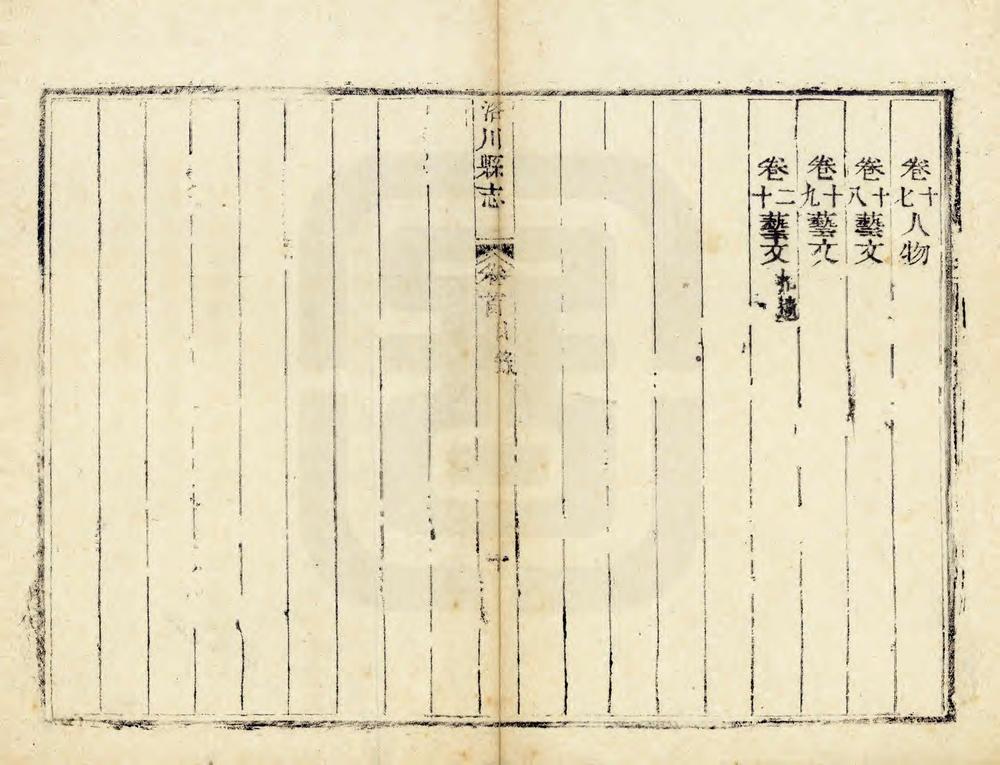 卷十七人物
卷十八藝文
卷十九藝文
卷二十藝文遺
洛川縣志
卷首目錄